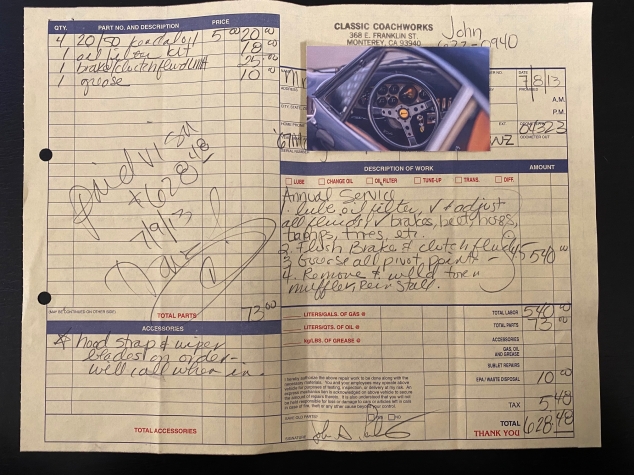 QTY. PART NO. AND DESCRIPTION PRICE
4 20/50 5 00 20 00
1 oil filter kit 18 00
1 brake/clutch fluid 25 00
1 grease 10 00
Paid Visa
628 48
7/9/13
(MAY BE CONTINUED ON OTHER SIDE)
TOTAL PARTS 73 00
ACCESSORIES
* hood strap & wiper
blades on order
will call when in.
TOTAL ACCESSORIES
CLASSIC COACHWORKS
368 E. FRANKLIN ST.
MONTEREY, CA 93940
John
-0940
DATE
7/8/13
PROMISED
A.M.
P.M.
04323
DESCRIPTION OF WORK AMOUNT
LUBE CHANGE OIL OIL FILTER TUNE-UP TRANS. DIFF.
Annual Service
1. lube, oil, filter, & adjust
all fluids, brakes, belts, hoses,
lamps, tires, etc.
2. Flush Brake & clutch fluid 540 00
3. Grease all pivot points
4. Remove & weld torn
muffler, Reinstall.
LITERS/GALS. OF GAS @
LITERS/QTS. OF OIL @
kg/LBS. OF GREASE @
TOTAL LABOR 540 00
TOTAL PARTS 73 00
ACCESSORIES
GAS, OIL AND GREASE
SUBLET REPAIRS
EPA/WASTE DISPOSAL 10 00
TAX 5 48
TOTAL 628.48
THANK YOU
SIGNATURE